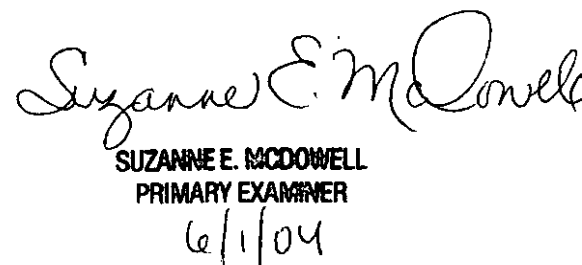 Suzanne E. McDowell
SUZANNE E. MCDOWELL
PRIMARY EXAMINER
6/1/04